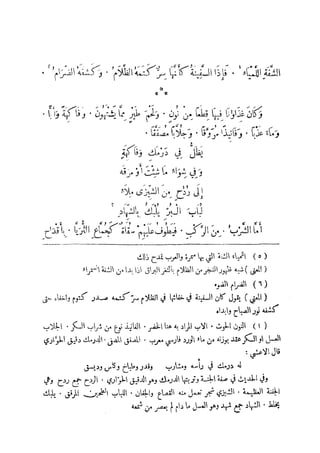 الشفة اللمياء ٥ ٠ فإذا السفينة كأنها سر كتمه الظلام ٠ وكشفه الضرام ٦ ٠
***
وكان غذاؤنا فيها قطعا من نون ٠ ولحم طير مما يشتهون ٠ وفاكهة وأبا ٠
وماء عذبا ٠ وفانيذا مروقا ٠ وجلابا مصفقا ٠
يظل في درمك وفاكهة
وفي شواء ما شئت أو مرقه
إلى ردح من الشيزى ملاء
لباب البر يلبك بالشهاد ١
أما الشرب ٠ من الركب ٠ فيطوف عليهم سقاة كجماع الثريا ٠ بأقداح
( ٥ ) اللمياء الشفة التي بها سمرة والعرب تمدح ذلك
( المعنى ) شبه ظهور الفجر من الظلام بالثغر البراق اذا بدا من الشفة السمراء
( ٦ ) الضرام الضوء
( المعنى ) يقول كان السفينة في خفائها في الظلام سر كتمه صدر كتوم واخفاء حتى
كشفه نور الصباح وابداه
( ١ ) النون الحوت ٠ الاب المراد به هنا الخضر ٠ الفانيذ نوع من شراب السكر ٠ الجلاب
العسل او السكر عقد بوزنه من ماء الورد فارسي معرب ٠ المصفق المنقى ٠ الدرمك دقيق الحواري
قال الاعشى :
له درمك في رأسه ومشارب وقدر وطباخ وكأس وديسق
وفي الحديث في صفة الجنة وتربتها الدرمك وهو الدقيق الحواري ٠ الردح جمع ردح وهي
الجفنة العظيمة ٠ الشيزى شجر تعمل منه القصاع والجفان ٠ اللباب الطحين المرقق ٠ يلبك
يخلط ٠ الشهاد جمع شهد وهو العسل ما دام لم يعصر من شمعه